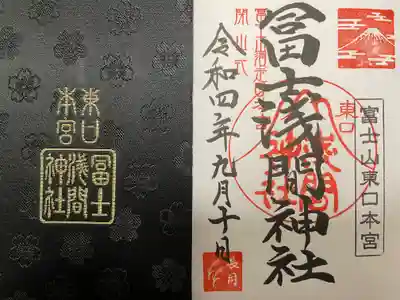 東口
本宮
冨士
浅間
神社
冨士山東口本宮
東口
冨士浅間神社
閉山式
令和四年九月十日
長月